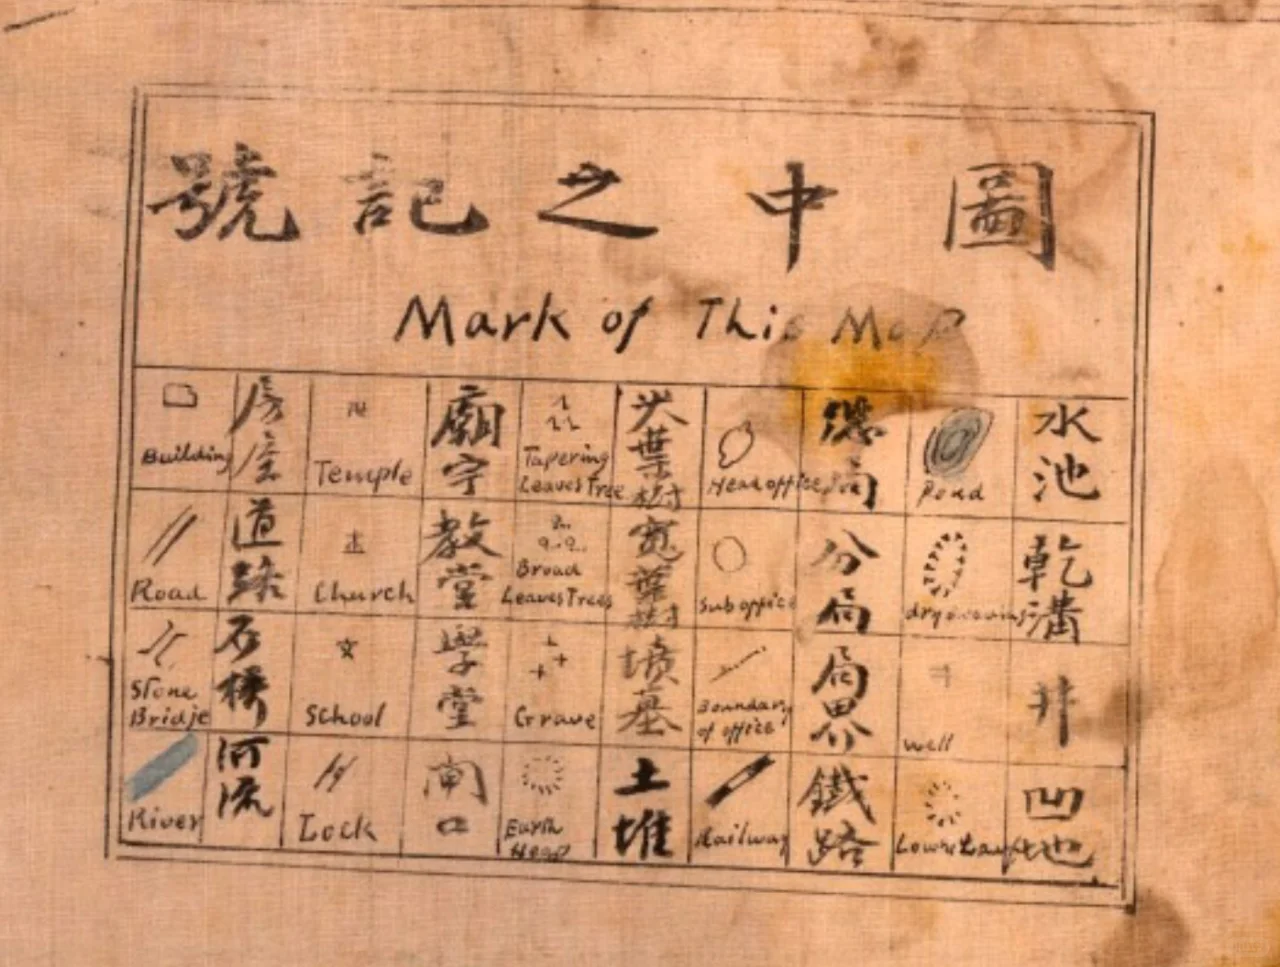 圖中之記號
Mark of This Map
Building
房屋
Temple
廟宇
Tapering
Leaves Tree
尖葉樹
Head office
總局
Pond
水池
Road
道路
Church
教堂
Broad
Leaves Trees
寬葉樹
Sub office
分局
dry
乾溝
Stone
Bridje
石橋
School
學堂
Grave
墳墓
Boundary
of office
局界
well
井
River
河流
Lock
閘口
Earth
Heap
土堆
Railway
鐵路
凹地